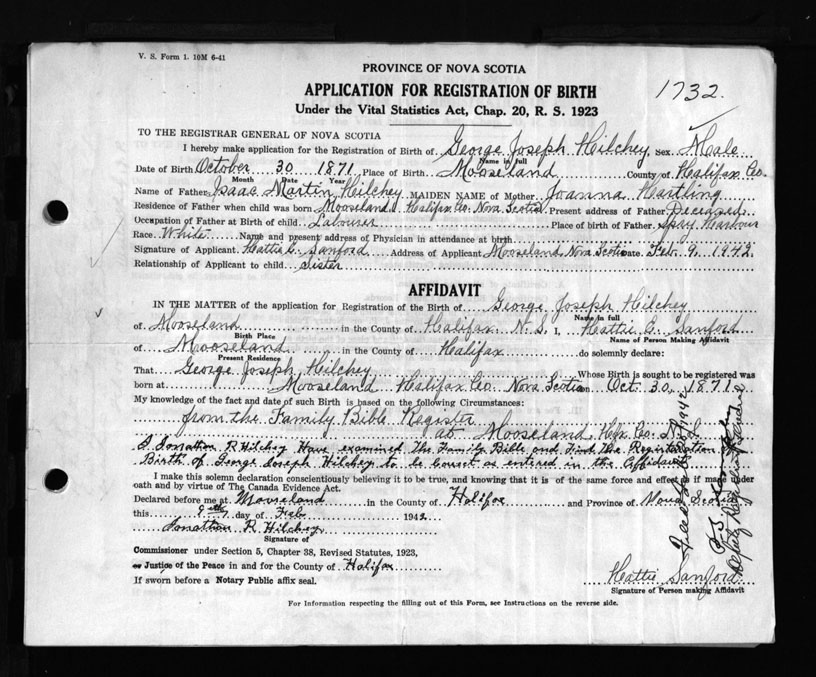 V. S. Form 1. 10M 6-41
PROVINCE OF NOVA SCOTIA
APPLICATION FOR REGISTRATION OF BIRTH
1732.
Under the Vital Statistics Act, Chap. 20, R. S. 1923
TO THE REGISTRAR GENERAL OF NOVA SCOTIA
I hereby make application for the Registration of Birth of George Joseph Hilchey Sex Male
Name in full
Date of Birth October 30 1871 Place of Birth Mooseland County of Halifax Co.
Month Date Year
Name of Father Isaac Martin Hilchey MAIDEN NAME of Mother Joanna Hartling
Residence of Father when child was born Mooseland Halifax Co. Nova Scotia Present address of Father Deceased
Occupation of Father at Birth of child Labourer Place of birth of Father Spry Harbour
Race White Name and present address of Physician in attendance at birth
Signature of Applicant Hattie C. Sanford Address of Applicant Mooseland Nova Scotia Date Feb. 9. 1942.
Relationship of Applicant to child Sister
AFFIDAVIT
IN THE MATTER of the application for Registration of the Birth of George Joseph Hilchey
Name in full
of Mooseland in the County of Halifax N. S. I, Hattie C. Sanford
Birth Place Name of Person Making Affidavit
of Mooseland in the County of Halifax do solemnly declare:
Present Residence
That George Joseph Hilchey Whose Birth is sought to be registered was
born at Mooseland Halifax Co. Nova Scotia on Oct. 30. 1871
My knowledge of the fact and date of such Birth is based on the following Circumstances:
from the Family Bible Register
at Mooseland Hfx. Co. N. S.
I Jonathan R Hilchey Have examined The Family Bible and Find The Registration
Birth of George Joseph Hilchey to be correct as entered in the Affidavit
I make this solemn declaration conscientiously believing it to be true, and knowing that it is of the same force and effect as if made under
oath and by virtue of The Canada Evidence Act.
Declared before me at Mooseland in the County of Halifax and Province of Nova Scotia
this 9th day of Feb 1942
Jonathan R. Hilchey
Signature of
Commissioner under Section 5, Chapter 38, Revised Statutes, 1923,
or Justice of the Peace in and for the County of Halifax
If sworn before a Notary Public affix seal.
Hattie Sanford
Signature of Person making Affidavit
For Information respecting the filling out of this Form, see Instructions on the reverse side.